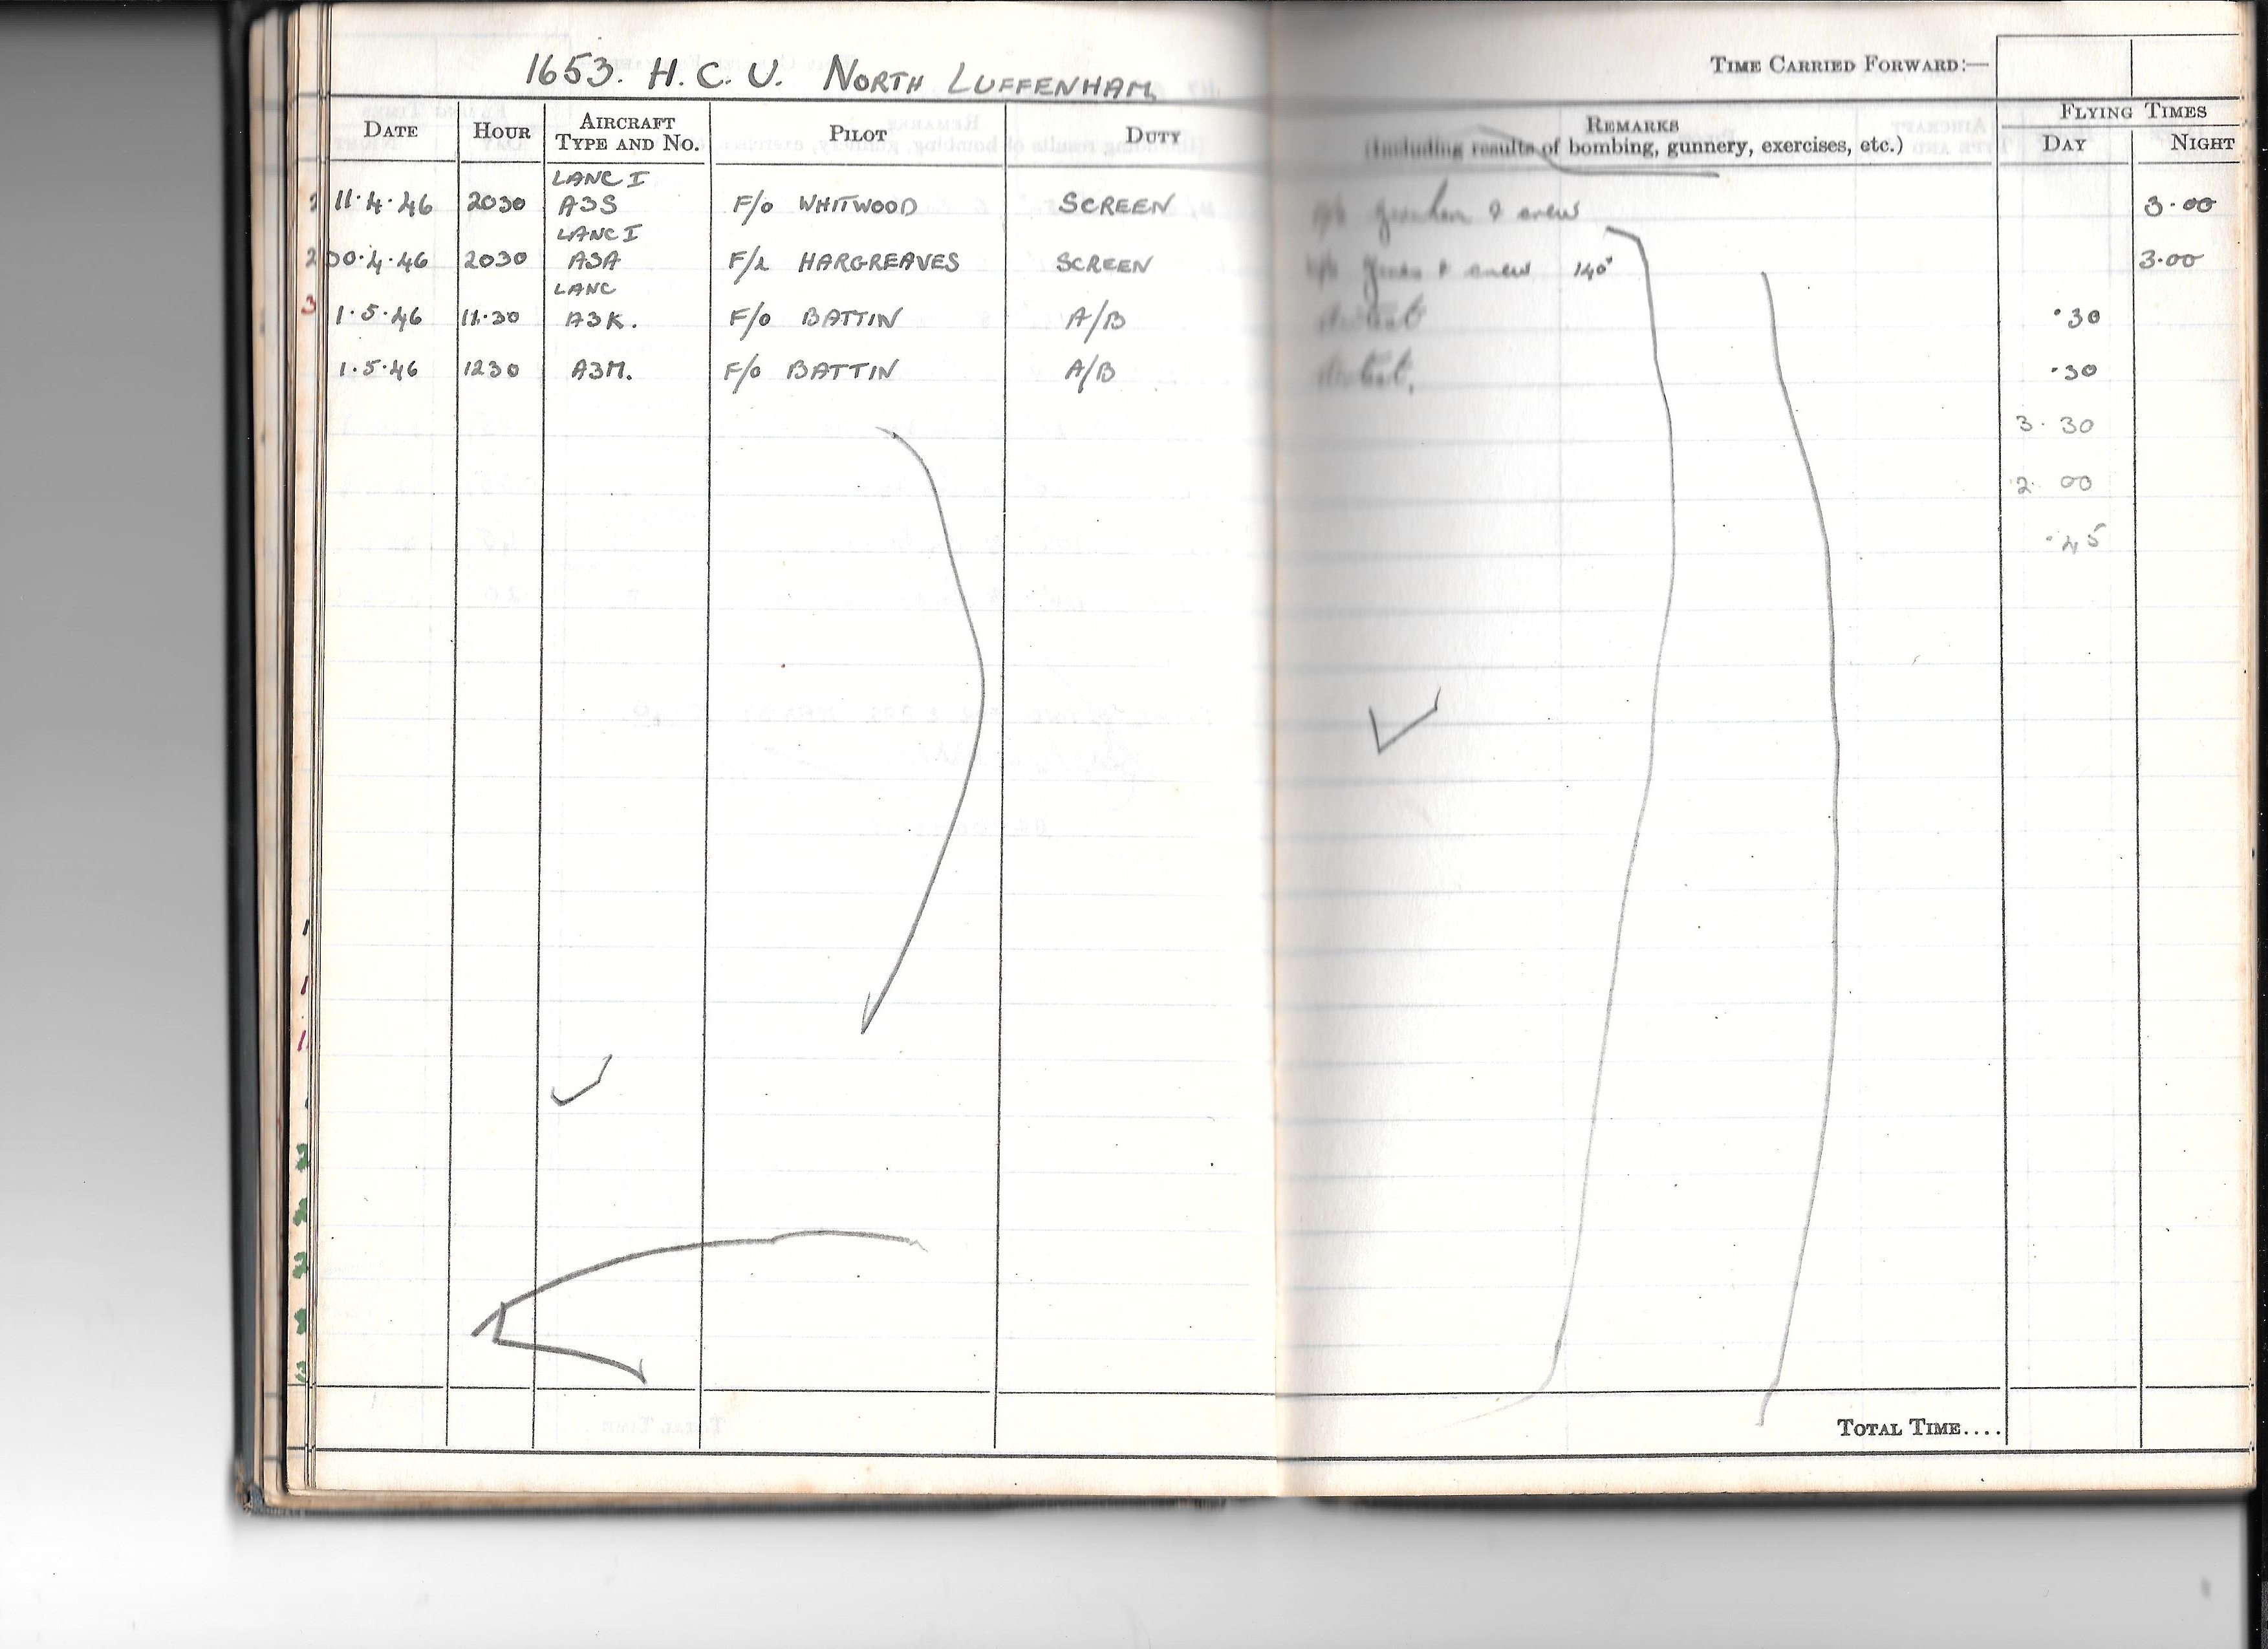 1653. H. C. U. NORTH LUFFENHAM
TIME CARRIED FORWARD:—
DATE HOUR AIRCRAFT TYPE AND No. PILOT DUTY REMARKS (Including results of bombing, gunnery, exercises, etc.) FLYING TIMES
DAY NIGHT
LANC I
11·4·46 2030 A3S F/O WHITWOOD SCREEN & crew 3·00
LANC I
30·4·46 2030 A3A F/L HARGREAVES SCREEN Jones & crew 140° 3·00
LANC
1·5·46 11·30 A3K. F/O BATTIN A/B ·30
1·5·46 1230 A3M. F/O BATTIN A/B ·30
3·30
2·00
·45
TOTAL TIME....